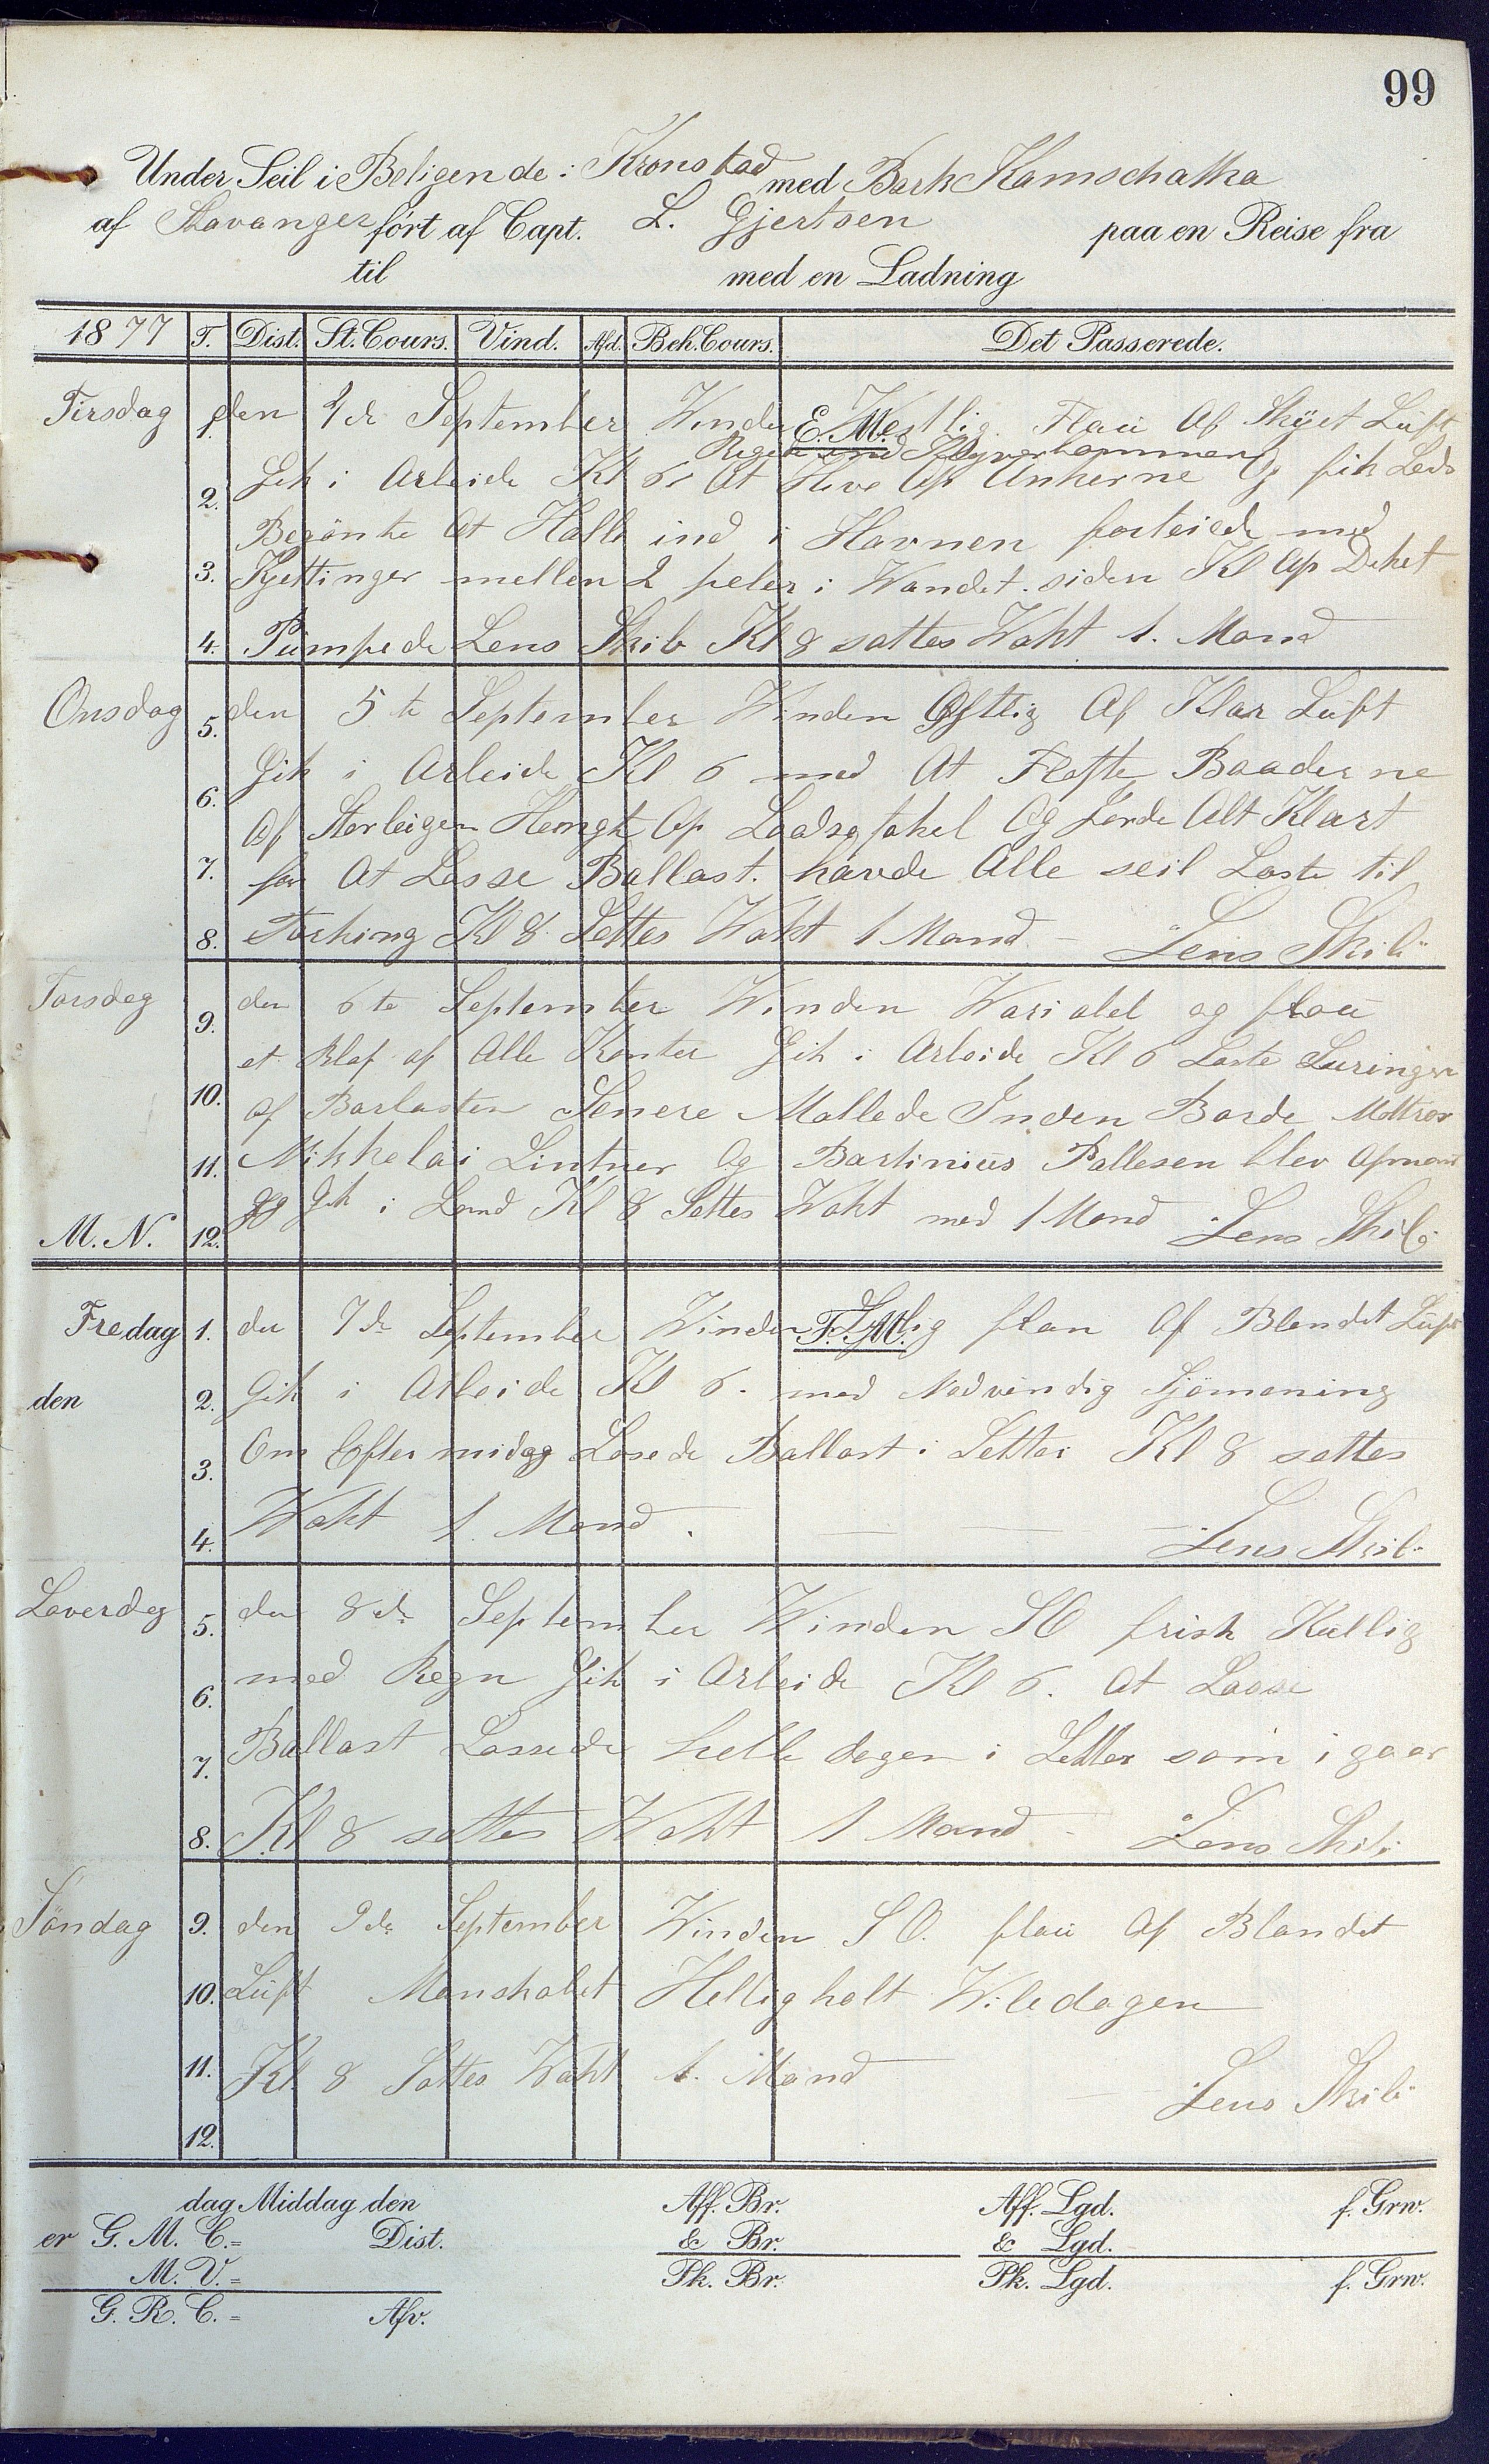 99
Under Seil i Beligende i Kronstad med Bark Kamschatka
af Stavanger ført af Capt. L. Gjertsen paa en Reise fra
til med en Ladning
1877 T. Dist. St. Cours. Vind. Afd. Beh. Cours. Det Passerede.
Tirsdag 1. den de September Winden E. M. Westlig Flau Af Skyet Luft
Regn
2. Gik i Arbeide Kl 6 At Hive Op Ankerne Og fik
Begønte At Halle ind i Havnen forteiede med
3. Kjettinger mellen 2 peler i Wandet. siden Kl Op Deket
4. Pümpede Lens Skib Kl 8 sattes Wakt 1. Mand
Onsdag 5. den 5te September Winden Østlig Af Klar Luft
6. Gik i Arbeide Kl 6 med At Fløtte Baaderne
Af Hengt Op Og Jorde Alt Klart
7. for At Losse Ballast. havde Alle seil Loste til
8. Torking Kl 8 Settes Wakt 1 Mand – Lens Skib
Torsdag 9. den 6te September Winden Wariabel og flau
et Blaf af Alle Kanter Gik i Arbeide Kl 6 Loste
10. af Barlasten Senere Mallede Inden Borde Mattros
11. Nikkelai Lintner Og Bartinius Pallesen blev Afmönst
M. N. 12. og Gik i Land Kl 8 Settes Wakt med 1 Mand Lens Skib
Fredag 1. den 7de September Winden F. M. flau Af Blandet Lüft
den 2. Gik i Arbeide Kl 6. med Nødvendig Sjømaning
3. Om Eftermidag Losede Ballast i Letter Kl 8 sattes
4. Wakt 1. Mand. Lens Skib
Loverdag 5. den 8de September Winden SO frisk Kullig
6. med Regn Gik i Arbeide Kl 6. At Losse
7. Ballast Lossede helle dagen i Letter som i gaar
8. Kl 8 sattes Wakt 1 Mand – Lens Skib
Söndag 9. den 9de September Winden SO. flau Af Blandet
10. Lüft Manskabet Helligholt Wiledagen
11. Kl 8 Sattes Wakt 1. Mand
Lens Skib
12.
dag Middag den Aff. Br. Aff. Lgd. f. Grw.
er G. M. C.= Dist. & Br. & Lgd.
M. V.= Pk. Br. Pk. Lgd. f. Grw.
G. R. C.= Afv.